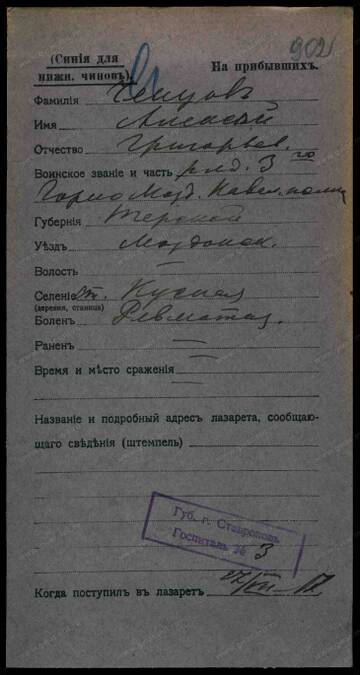 902
(Синія для нижн. чиновъ).
На прибывшихъ.
Фамилія Ченцовъ
Имя Алексѣй
Отчество Григорьев.
Воинское званіе и часть ряд. 3го
Горно Мозд. Кавал. полка
Губернія Терской
Уѣздъ Моздокск.
Волость —
Селеніе ст. Курская
(деревня, станица)
Боленъ Ревматиз.
Раненъ —
Время и мѣсто сраженія —
Названіе и подробный адресъ лазарета, сообщаю-
щаго свѣдѣнія (штемпель)
Губ. г. Ставрополь
Госпиталь № 3
Когда поступилъ въ лазаретъ 27/VII–17